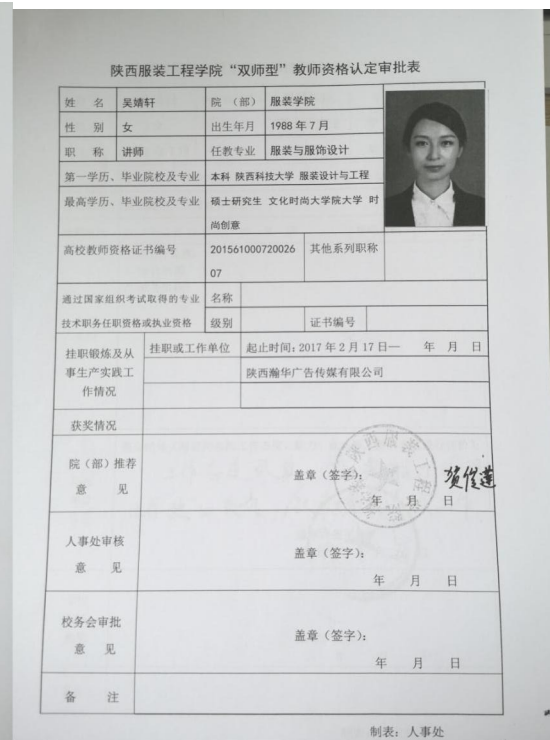 陕西服装工程学院“双师型”教师资格认定审批表
姓 名 吴婧轩 院（部） 服装学院
性 别 女 出生年月 1988 年 7 月
职 称 讲师 任教专业 服装与服饰设计
第一学历、毕业院校及专业 本科 陕西科技大学 服装设计与工程
最高学历、毕业院校及专业 硕士研究生 文化时尚大学院大学 时
尚创意
高校教师资格证书编号 201561000720026 其他系列职称
07
通过国家组织考试取得的专业 名称
技术职务任职资格或执业资格 级别 证书编号
挂职锻炼及从 挂职或工作单位 起止时间：2017 年 2 月 17日— 年 月 日
事生产实践工 陕西瀚华广告传媒有限公司
作情况
获奖情况
院（部）推荐 盖章（签字）： 贺俊莲
意 见 年 月 日
陕西服装工程学院
人事处审核 盖章（签字）：
意 见 年 月 日
校务会审批 盖章（签字）：
意 见 年 月 日
备 注
制表：人事处